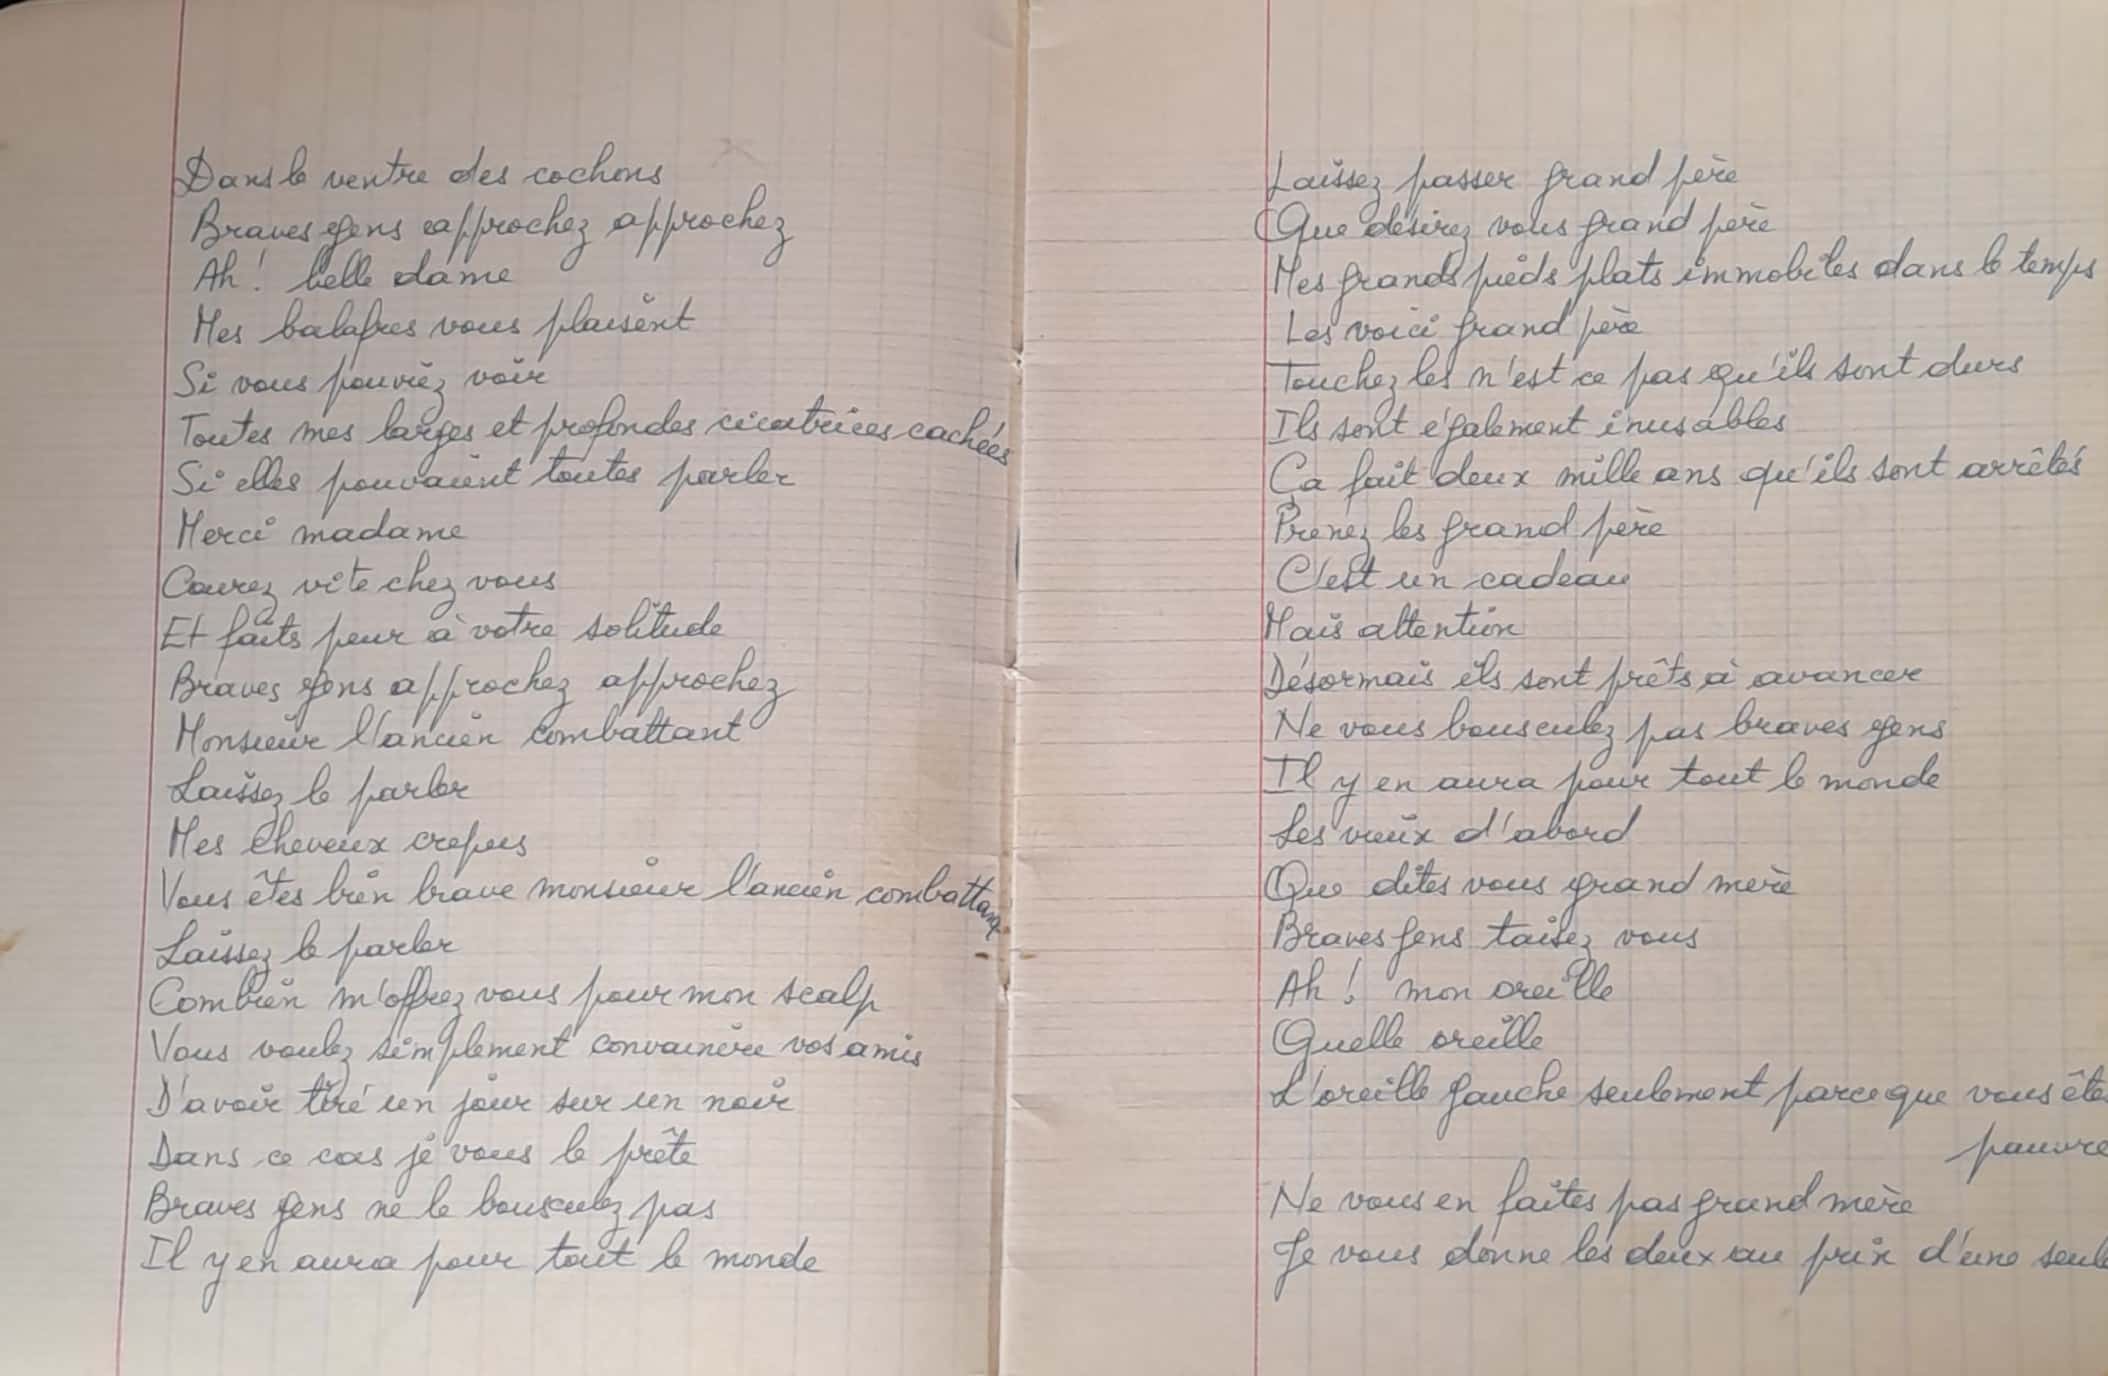 Dans le ventre des cochons
Braves gens approchez approchez
Ah ! belle dame
Mes balafres vous plaisent
Si vous pouviez voir
Toutes mes larges et profondes cicatrices cachées
Si elles pouvaient toutes parler
Merci madame
Courez vite chez vous
Et faits peur à votre solitude
Braves gens approchez approchez
Monsieur l'ancien combattant
Laissez le parler
Mes cheveux crepus
Vous êtes bien brave monsieur l'ancien combattant
Laissez le parler
Combien m'offrez vous pour mon scalp
Vous voulez simplement convaincre vos amis
D'avoir tiré un jour sur un noir
Dans ce cas je vous le prête
Braves gens ne le bousculez pas
Il y en aura pour tout le monde
Laissez passer grand père
Que désirez vous grand père
Mes grands pieds plats immobiles dans le temps
Les voici grand père
Touchez les n'est ce pas qu'ils sont durs
Ils sont également inusables
Ça fait deux mille ans qu'ils sont arrêtés
Prenez les grand père
C'est un cadeau
Mais attention
Désormais ils sont prêts à avancer
Ne vous bousculez pas braves gens
Il y en aura pour tout le monde
Les vieux d'abord
Que dites vous grand mère
Braves gens taisez vous
Ah ! mon oreille
Quelle oreille
L'oreille gauche seulement parce que vous êtes
pauvre
Ne vous en faites pas grand mère
Je vous donne les deux au prix d'une seule